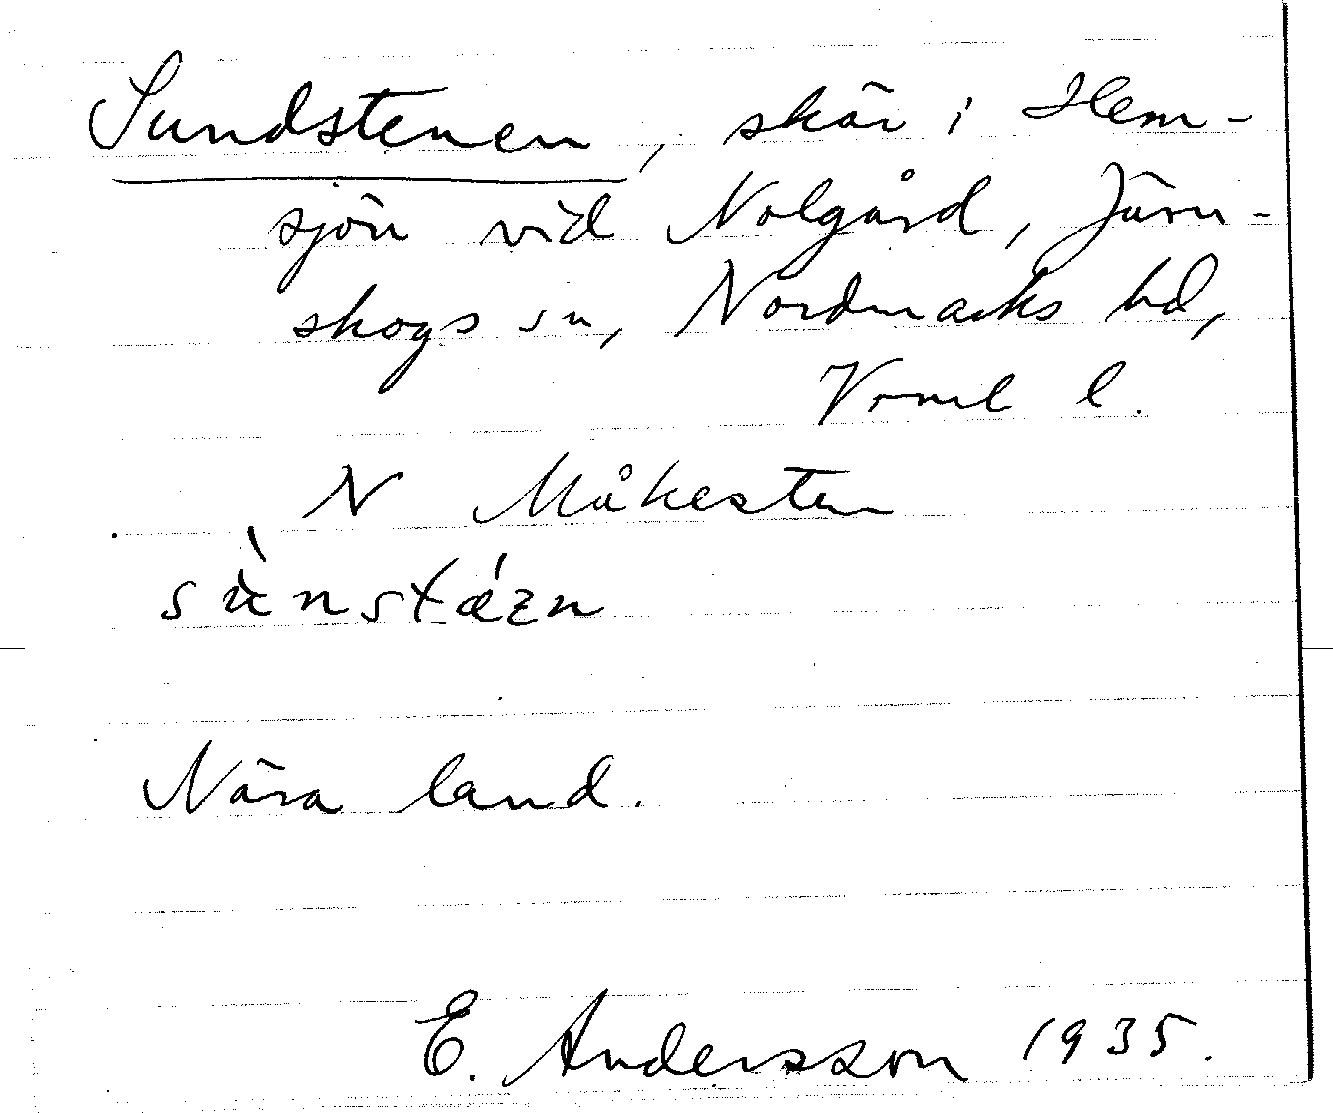 Sundstenen, skär i Hem-
sjön vid Nolgård, Järn-
skogs sn, Nordmarks hd,
Vrml l.
N Måkesten
Nära land.
E. Andersson 1935.